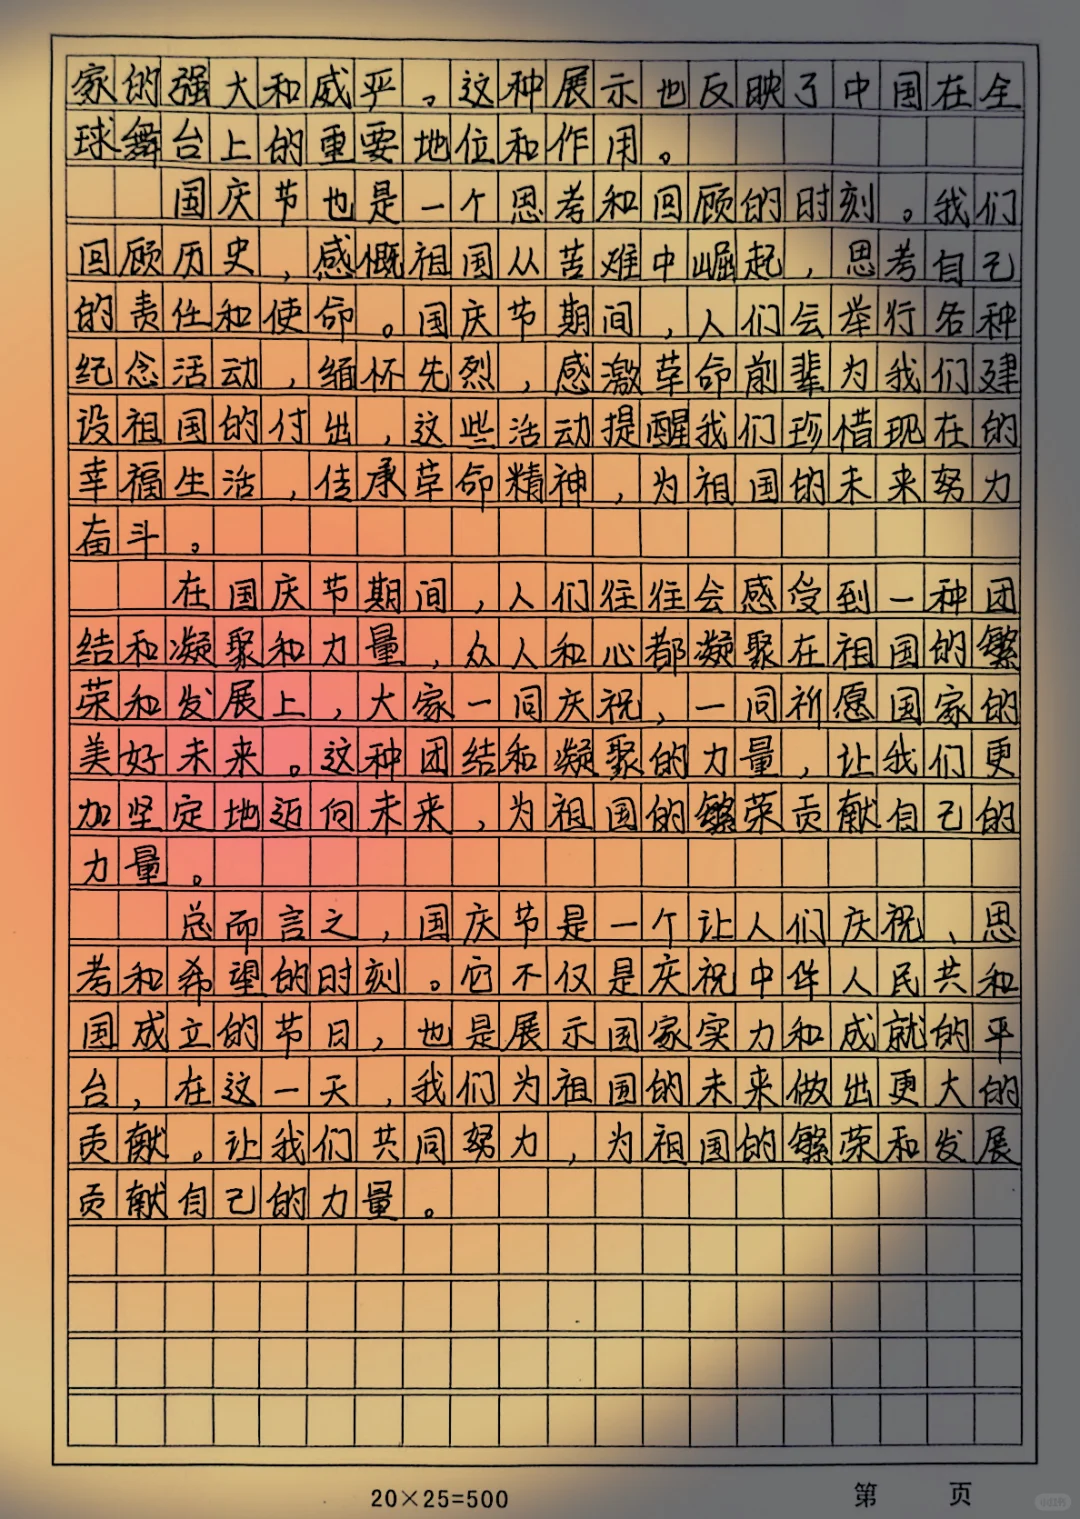 家的强大和威严。这种展示也反映了中国在全
球舞台上的重要地位和作用。
国庆节也是一个思考和回顾的时刻。我们
回顾历史，感慨祖国从苦难中崛起，思考自己
的责任和使命。国庆节期间，人们会举行各种
纪念活动，缅怀先烈，感激革命前辈为我们建
设祖国的付出，这些活动提醒我们珍惜现在的
幸福生活，传承革命精神，为祖国的未来努力
奋斗。
在国庆节期间，人们往往会感受到一种团
结和凝聚和力量，众人和心都凝聚在祖国的繁
荣和发展上，大家一同庆祝，一同祈愿国家的
美好未来。这种团结和凝聚的力量，让我们更
加坚定地迈向未来，为祖国的繁荣贡献自己的
力量。
总而言之，国庆节是一个让人们庆祝、思
考和希望的时刻。它不仅是庆祝中华人民共和
国成立的节日，也是展示国家实力和成就的平
台，在这一天，我们为祖国的未来做出更大的
贡献。让我们共同努力，为祖国的繁荣和发展
贡献自己的力量。
20×25=500
第 页
小红书